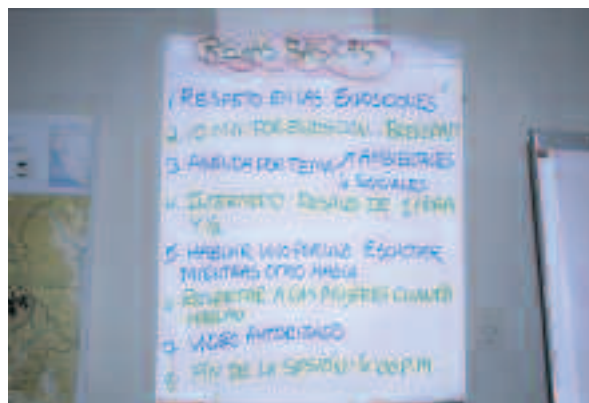 REGLAS BÁSICAS
1 RESPETO EN LAS EMOCIONES
2 10 MIN POR
3 AGENDA POR TEMAS AMBIENTALES
Y SOCIALES
4 INTERMEDIO DESPUES DE 1 HORA
Y ½
5 HABLAR UNO POR UNO ESCUCHAR
MIENTRAS OTRO HABLA
6 RESPETAR A LAS MUJERES CUANDO
HABLAN
7 VIDEO AUTORIZADO
8 FIN DE LA SESIÓN 6:00 P.M